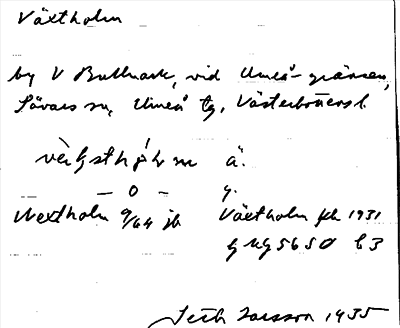 Växtholm
by V Bullmark, vid Umeå-gränsen,
Sävars sn, Umeå tg, Västerbottens l.
ä.
— o — y.
Wextholm 9/64 jb Växtholm fkb 1931
GNG5650 b3
Seth Larsson 1935